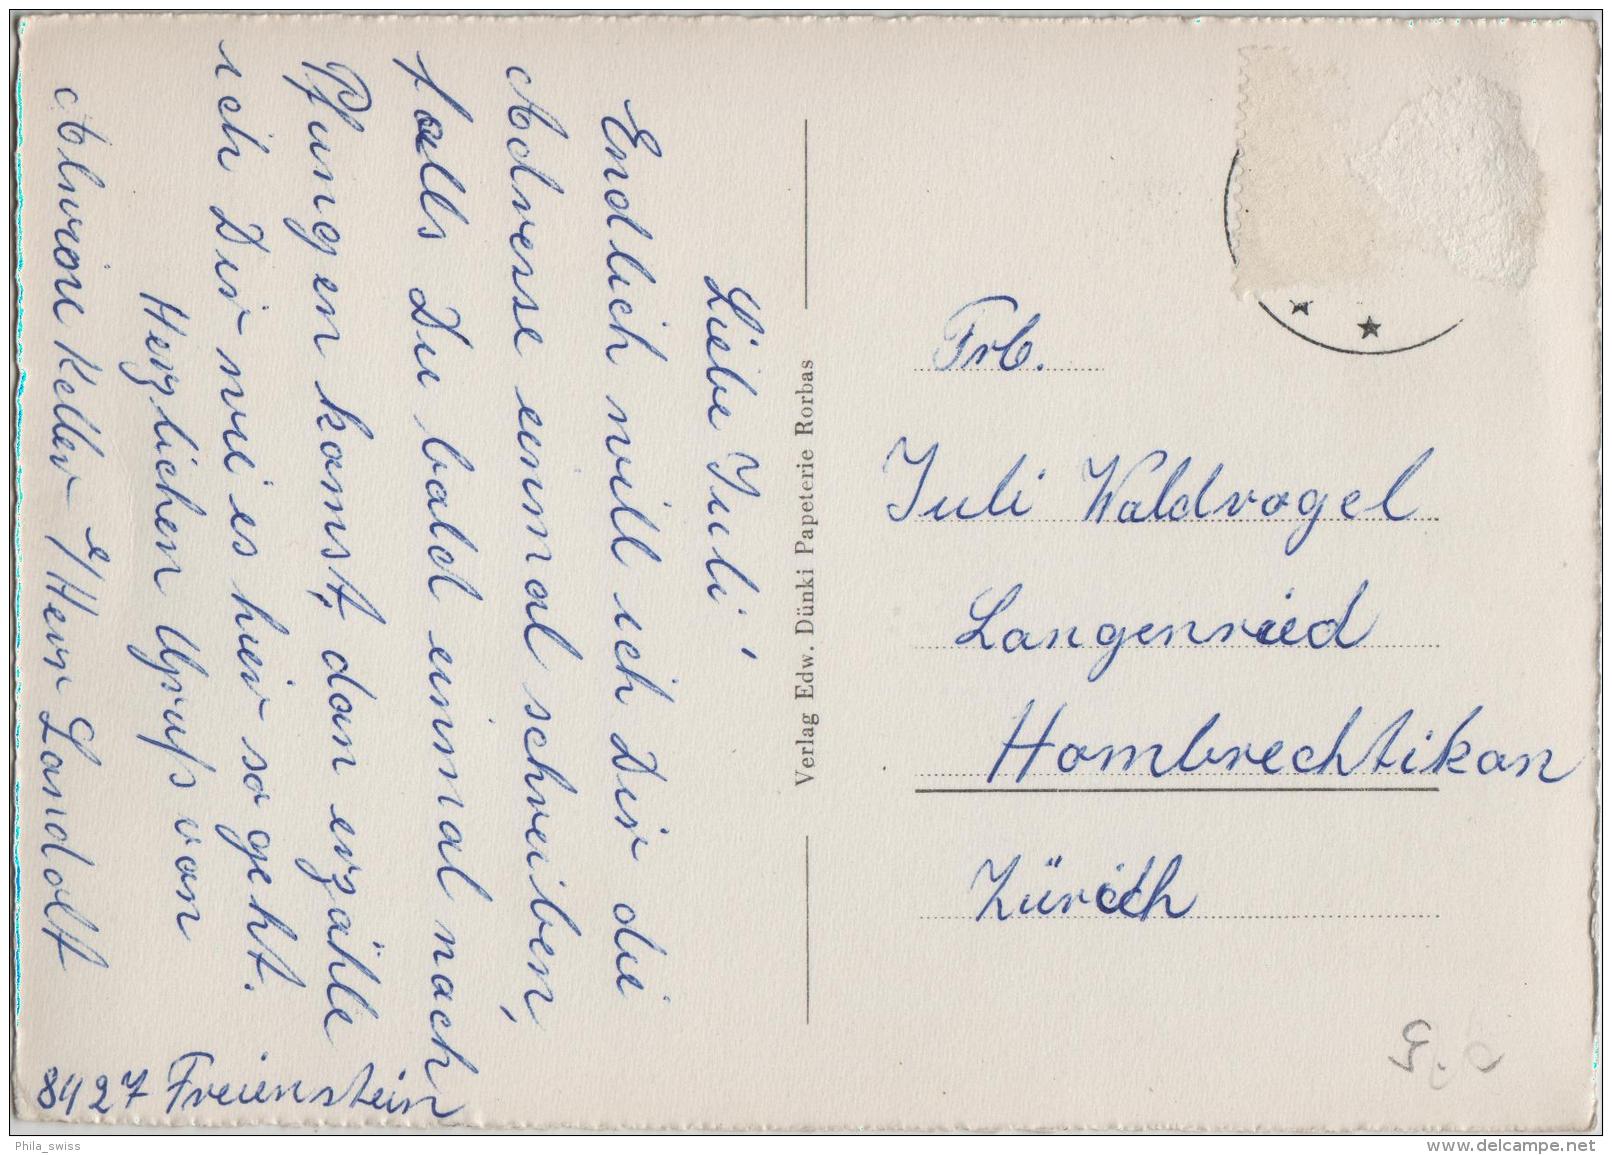 Liebe Juli,
Endlich will ich Dir die
Adresse einmal schreiben,
falls Du bald einmal nach
Pfungen komst, dan erzähle
ich Dir wie es hier so geht.
Herzlichen Gruß von
Keller Landolt
8427 Freienstein
Verlag Edw. Dünki Papeterie Rorbas
Frl.
Juli Waldvogel
Langenried
Hombrechtikon
Zürich
Phila_swiss
www.delcampe.net